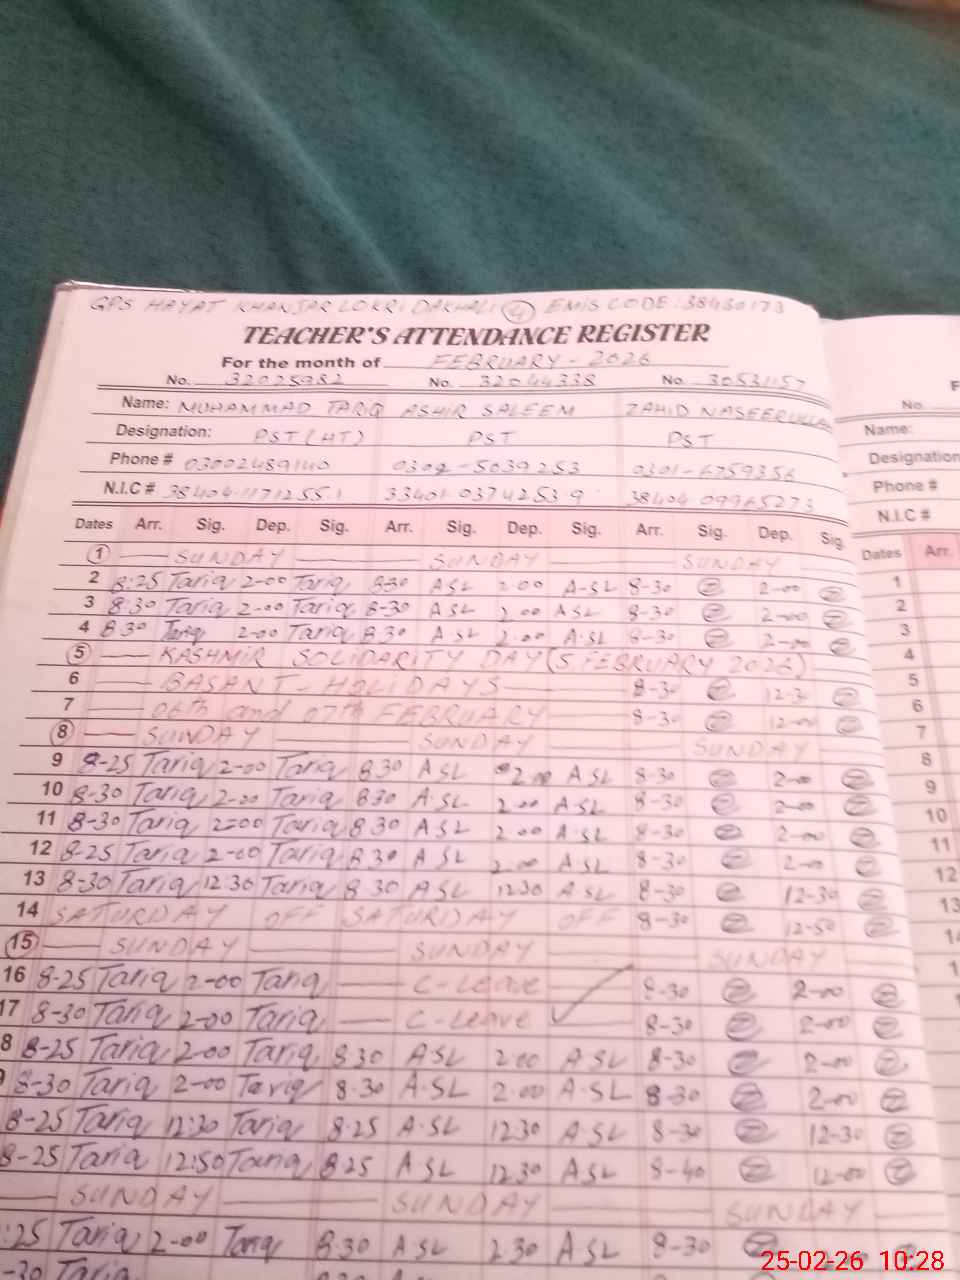 GPS HAYAT KHANJAR LOKRI DAKHALI (4) EMIS CODE: 38430173
TEACHER'S ATTENDANCE REGISTER
For the month of FEBRUARY - 2026
No. 32025982 No. 32044338 No. 30531157
Name: MUHAMMAD TARIQ ASHIR SALEEM ZAHID NASEERULLAH
Designation: PST (HT) PST PST
Phone # 03002489140 0302-5039253 0301-6759356
N.I.C # 38404-1171255-1 33401-0374253-9 38404-09965273
Dates Arr. Sig. Dep. Sig. Arr. Sig. Dep. Sig. Arr. Sig. Dep. Sig.
1 SUNDAY SUNDAY SUNDAY
2 8:25 Tariq 2-00 Tariq 8:30 ASL 2.00 A-SL 8-30 2-00
3 8:30 Tariq 2-00 Tariq 8-30 ASL 2.00 ASL 8-30 2-00
4 8.30 Tariq 2-00 Tariq 8.30 A.SL 2.00 A.SL 8-30 2-00
5 KASHMIR SOLIDARITY DAY (5 FEBRUARY 2026)
6 BASANT - HOLIDAYS 8-30 12-30
7 06th and 07th FEBRUARY 8-30 12-00
8 SUNDAY SUNDAY SUNDAY
9 8-25 Tariq 2-00 Tariq 8.30 ASL 2.00 ASL 8-30 2-00
10 8-30 Tariq 2-00 Tariq 8.30 A.SL 2.00 A.SL 8-30 2-00
11 8-30 Tariq 2-00 Tariq 8.30 ASL 2.00 A.SL 8-30 2-00
12 8-25 Tariq 2-00 Tariq 8.30 A SL 2.00 A.SL 8-30 2-00
13 8-30 Tariq 12.30 Tariq 8.30 ASL 12.30 A.SL 8-30 12-30
14 SATURDAY OFF SATURDAY OFF 8-30 12-50
15 SUNDAY SUNDAY SUNDAY
16 8-25 Tariq 2-00 Tariq C-Leave 8-30 2-00
17 8-30 Tariq 2-00 Tariq C-Leave 8-30 2-00
8 8-25 Tariq 2-00 Tariq 8.30 ASL 2.00 ASL 8-30 2-00
8-30 Tariq 2-00 Tariq 8.30 A.SL 2.00 A.SL 8-30 2-00
8-25 Tariq 12:30 Tariq 8.25 A.SL 12.30 A.SL 8-30 12-30
8-25 Tariq 12:50 Tariq 8.25 A.SL 12.30 A.SL 8-40 12-00
SUNDAY SUNDAY SUNDAY
:25 Tariq 2-00 Tariq 8.30 A SL 2.30 A.SL 8-30
-30 Tariq
No.
Name:
Designation
Phone #
N.I.C #
Dates Arr.
1
2
3
4
5
6
7
8
9
10
11
12
13
25-02-26 10:28